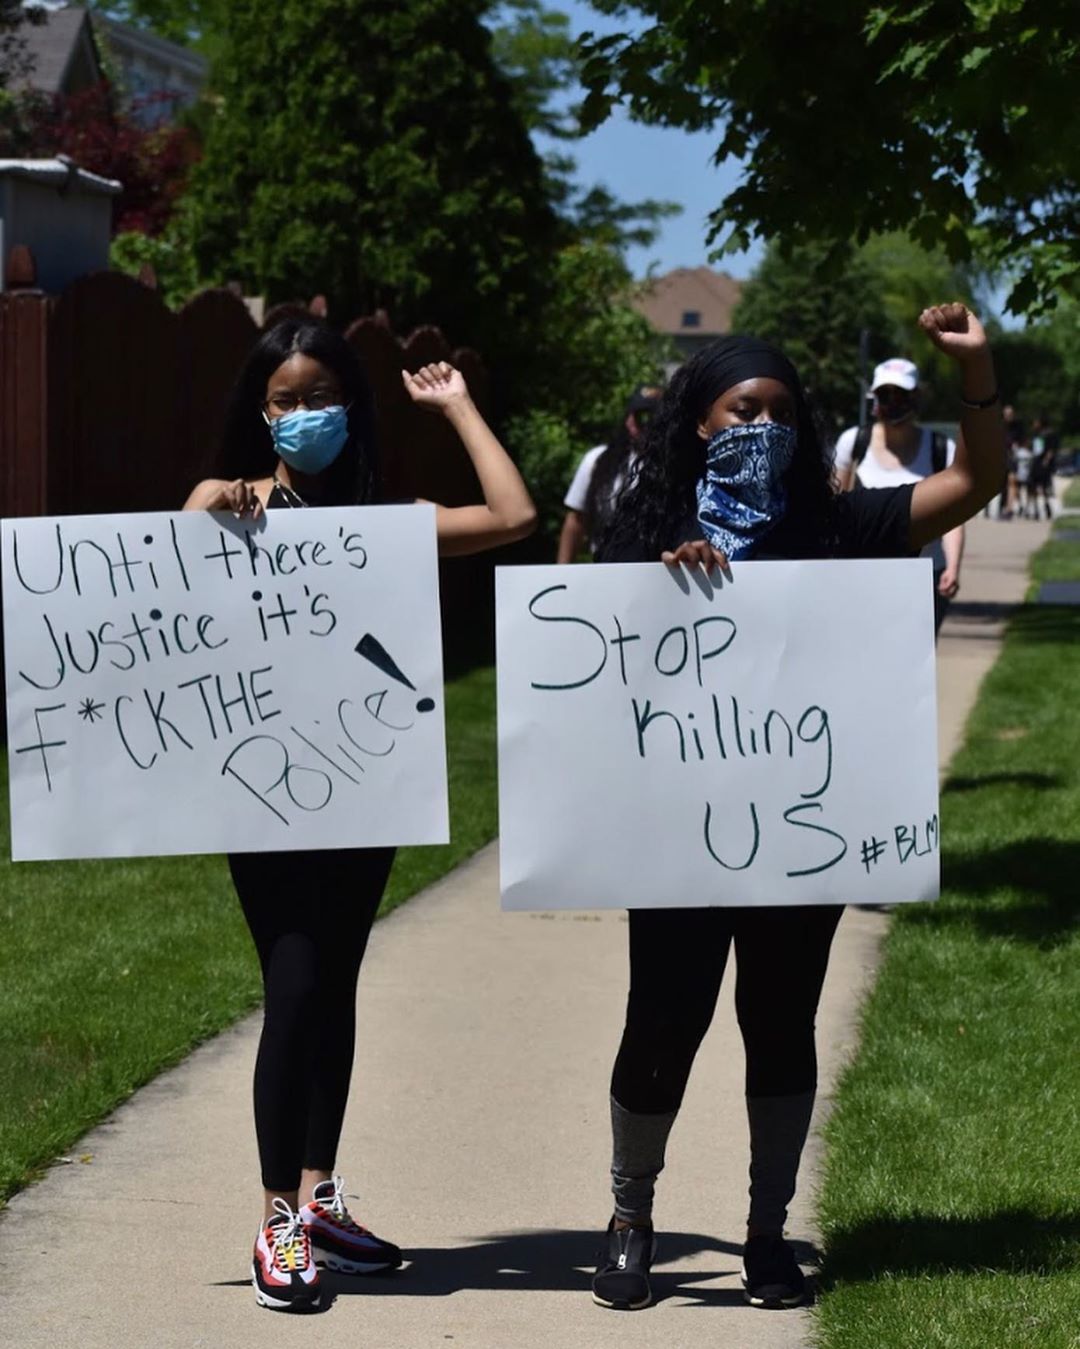 Until there's
Justice it's
F*CK THE
Police!
Stop
Killing
US #BLM